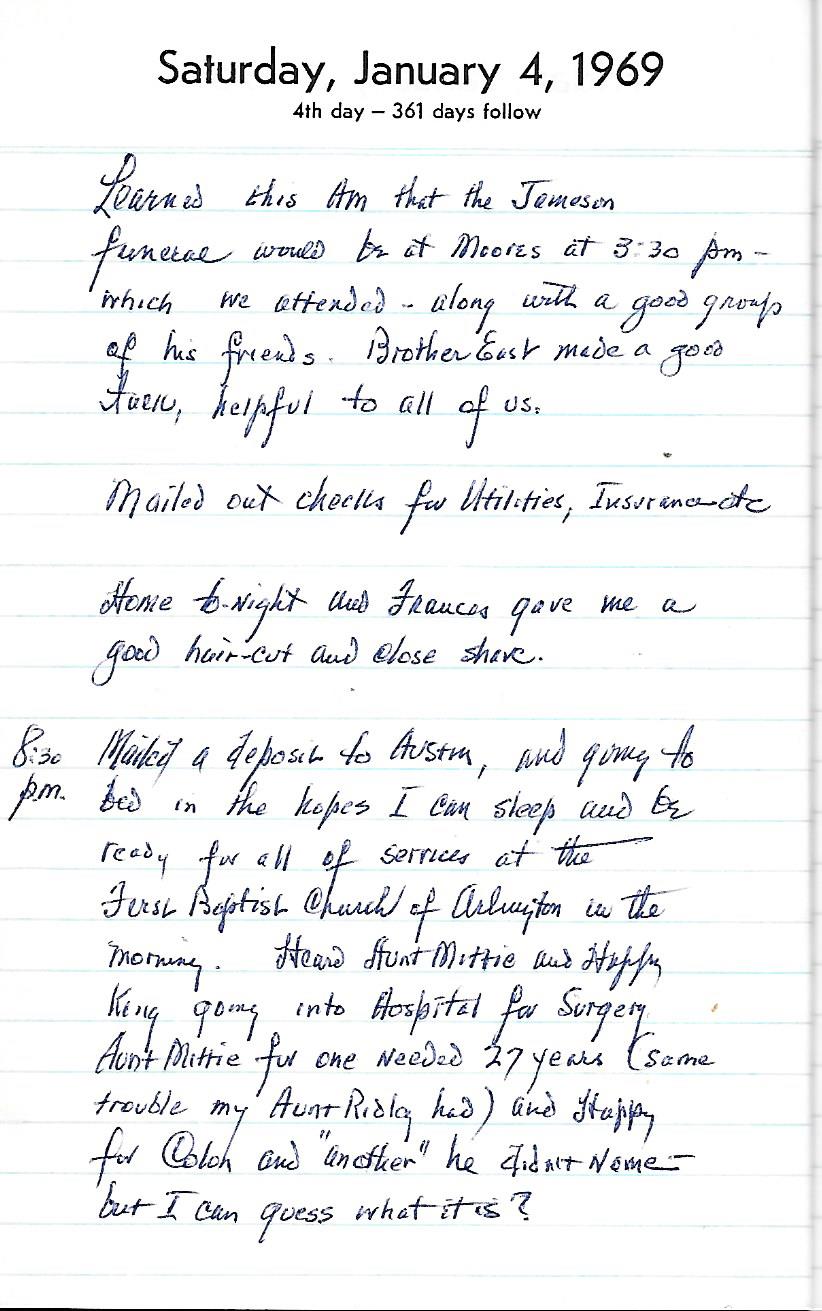 Saturday, January 4, 1969
4th day – 361 days follow
Learned this Am that the Jameson
funeral would be at Moores at 3:30 pm -
which we attended - along with a good group
of his friends. Brother East made a good
talk, helpful to all of us.
Mailed out checks for Utilities, Insurance etc
Home to-night and Frances gave me a
good hair-cut and close shave.
8:30 p.m.
Mailed a deposit to Austin, and going to
bed in the hopes I can sleep and be
ready for all of services at the
First Baptist Church of Arlington in the
morning. Heard Aunt Mittie and Happy
King going into Hospital for Surgery
Aunt Mittie for one needed 27 years (same
trouble my Aunt Ridley had) and Happy
for Colon and "another" he didn't Name -
but I can guess what it is?